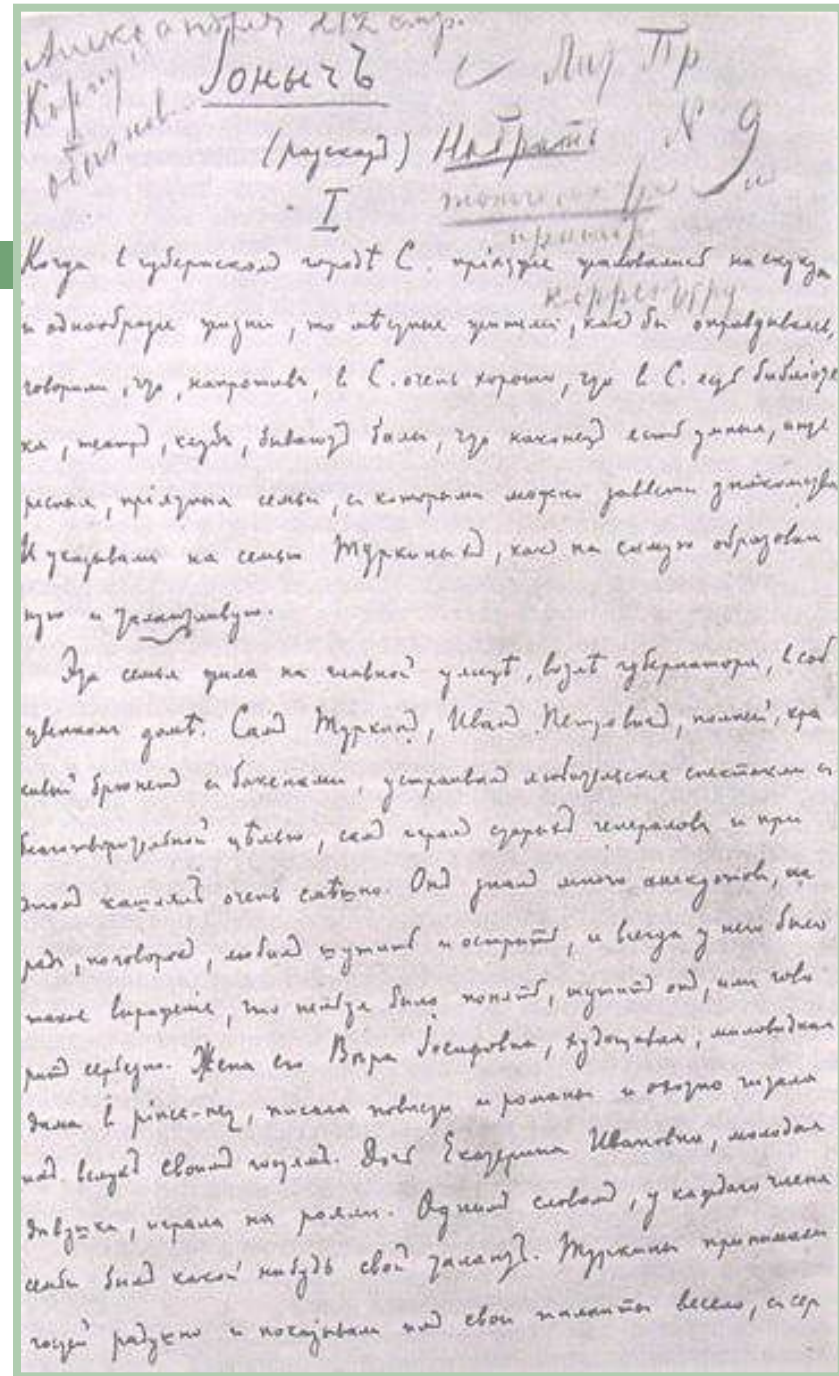 Александрия 212 стр.
Корзу
Іонычъ Лит Пр
(разсказ) Набрать N 9
I
корректуру
Когда в губернском городѣ С. пріѣзжіе жаловались на скуку
и однообразіе жизни, то мѣстные жители, как бы оправдываясь,
говорили, что, напротивъ, в С. очень хорошо, что в С. есть библіоте
ка, театр, клубъ, бывают балы, что наконец есть умныя, инте
ресныя, пріятныя семьи, с которыми можно завести знакомства
И указывали на семью Туркиных, как на самую образован
ную и талантливую.
Эта семья жила на главной улицѣ, возлѣ губернатора, в соб
ственном домѣ. Сам Туркин, Иван Петрович, полный, кра
сивый брюнет с бакенами, устраивал любительскіе спектакли с
благотворительной цѣлью, сам играл старых генералов и при
этом кашлял очень смѣшно. Он знал много анекдотов, ша
рад, поговорок, любил шутить и острить, и всегда у него было
такое выраженіе, что нельзя было понять, шутит он, или гово
рит серьезно. Жена его Вѣра Іосифовна, худощавая, миловидная
дама в pince-nez, писала повѣсти и романы и охотно читала
их вслух своим гостям. Дочь Екатерина Ивановна, молодая
дѣвушка, играла на рояли. Одним словом, у каждаго члена
семьи был какой нибудь свой талант. Туркины принимали
гостей радушно и показывали им свои таланты весело, с сер